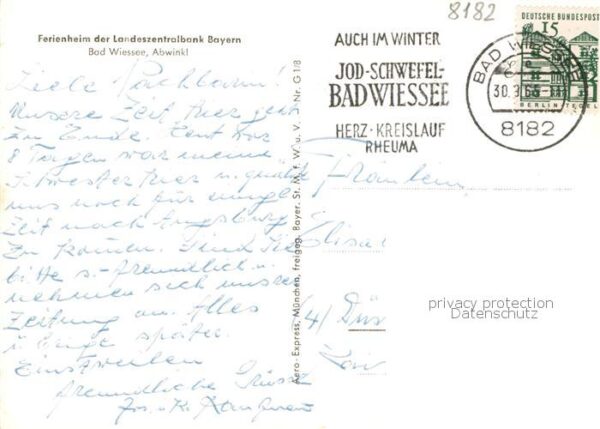 8182
Ferienheim der Landeszentralbank Bayern
Bad Wiessee, Abwinkl
AUCH IM WINTER
JOD-SCHWEFEL-
BAD WIESSEE
HERZ·KREISLAUF
RHEUMA
DEUTSCHE BUNDESPOST
15
BERLIN-TEGEL
BAD WIESSEE
30.3.
8182
Liebe
Unsere Zeit hier geht
zu Ende. Heut vor
8 Tagen war meine
Schwester hier u.
uns noch für einige
Zeit nach Augsburg
zu kommen. Sind Sie
bitte so freundlich u.
nehmen sich unsere
Zeitung an. Alles
übrige später.
Einstweilen
freundliche Grüsse
Jos. u. K.
Aero-Express, München, freigeg. Bayer. St. M. f. W. u. V. Nr. G1/8
Fräulein
Elisa
(4) Düs
privacy protection
Datenschutz